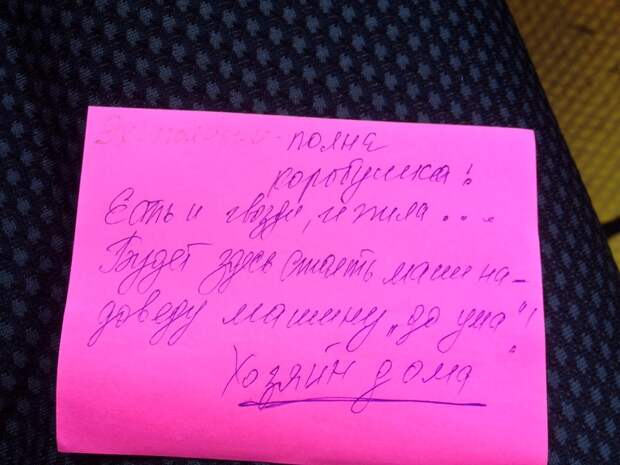 Эх, полным-полне
коробушка!
Есть и гвозди, и жила...
Будет здесь стоять машина-
доведу машину „до ума"!
Хозяин дома